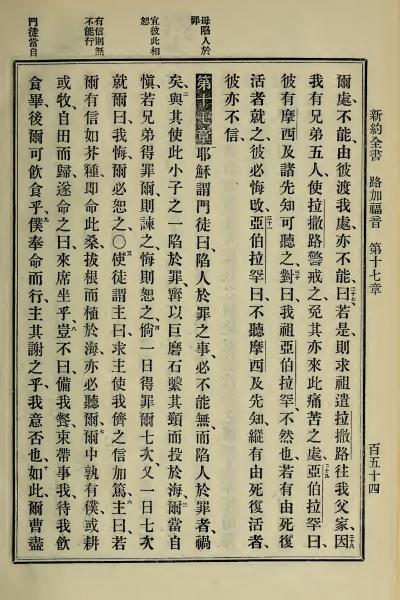 新約全書 路加福音 第十七章 百五十四
爾處、不能由彼渡我處、亦不能、二十七曰、若是、則求祖遣拉撒路往我父家、二十八因
我有兄弟五人、使拉撒路警戒之、免其亦來此痛苦之處、二十九亞伯拉罕曰、
彼有摩西及諸先知可聽之、三十對曰、我祖亞伯拉罕、不然也、若有由死復
活者就之、彼必悔改、三十一亞伯拉罕曰、不聽摩西及先知、縱有由死復活者、
彼亦不信、
第十七章 一耶穌謂門徒曰、陷人於罪之事、必不能無、而陷人於罪者、禍
矣、二與其使此小子之一陷於罪、寧以巨磨石繫其頸而投於海、三爾當自
愼、若兄弟得罪爾、則諫之、悔則恕之、四倘一日得罪爾七次、又一日七次
就爾曰、我悔、爾必恕之、〇五使徒謂主曰、求主使我儕之信加篤、六主曰、若
爾有信如芥種、卽命此桑、拔根而植於海、亦必聽爾、七爾中孰有僕、或耕
或牧、自田而歸、遂命之曰、來席坐乎、八豈不曰、備我餐、束帶事我、待我飲
食畢、後爾可飲食乎、九僕奉命而行、主其謝之乎、我意否也、十如此、爾曹盡
毋陷人於
罪
宜彼此相
恕
有信則無
不能行
門徒當自